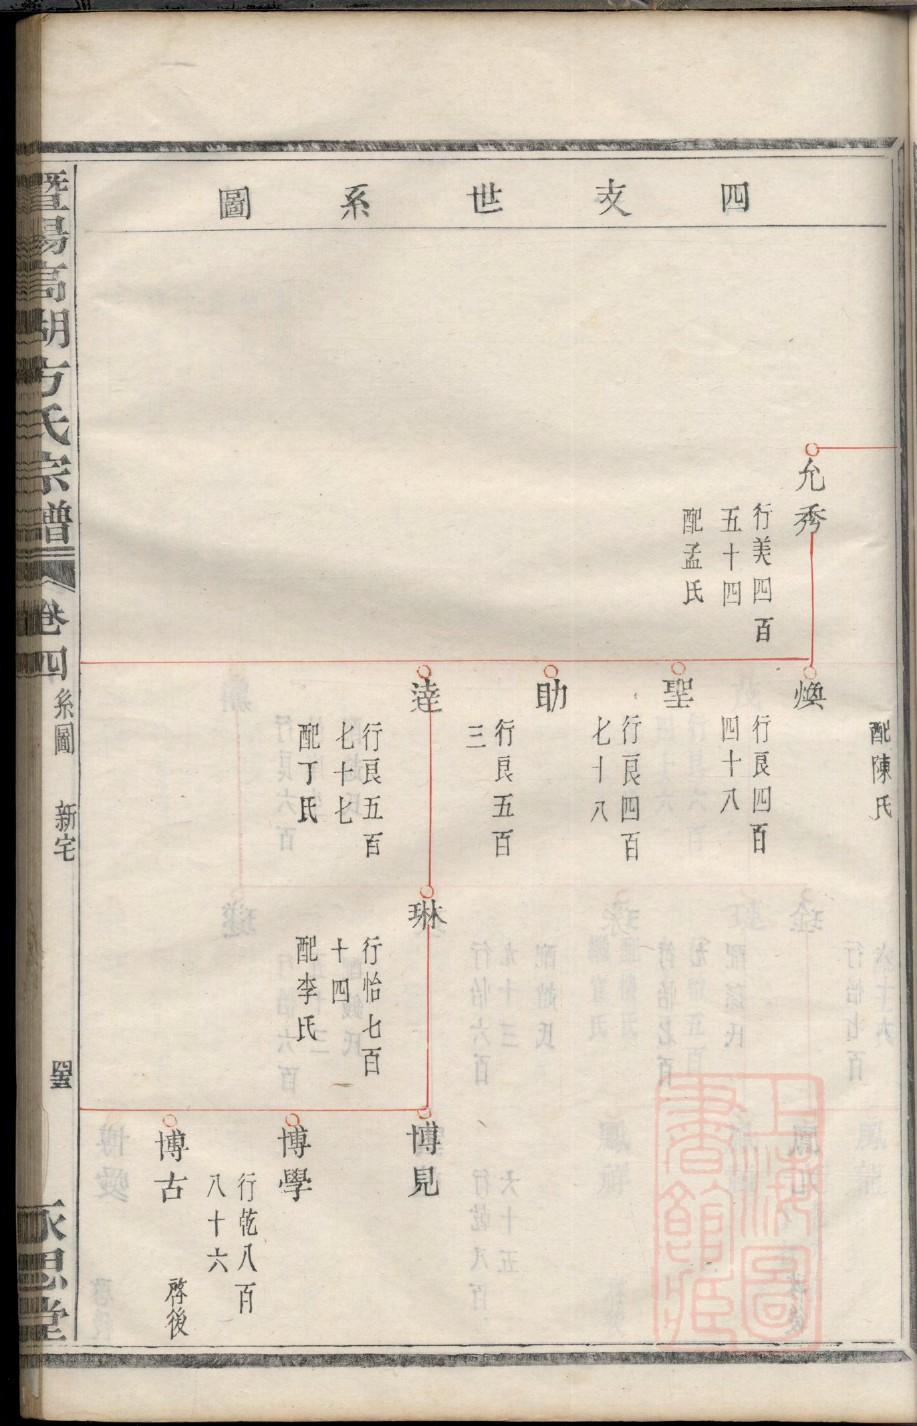 四支世系圖
配陳氏
允秀
行美四百
五十四
配孟氏
煥
行良四百
四十八
聖
行良四百
七十八
助
行良五百
三
達
行良五百
七十七
配丁氏
琳
行怡七百
十四
配李氏
博見
博學
行乾八百
八十六
博古
啓後
暨陽高湖方氏宗譜
卷四
系圖
新宅
永思堂
上海圖書館藏